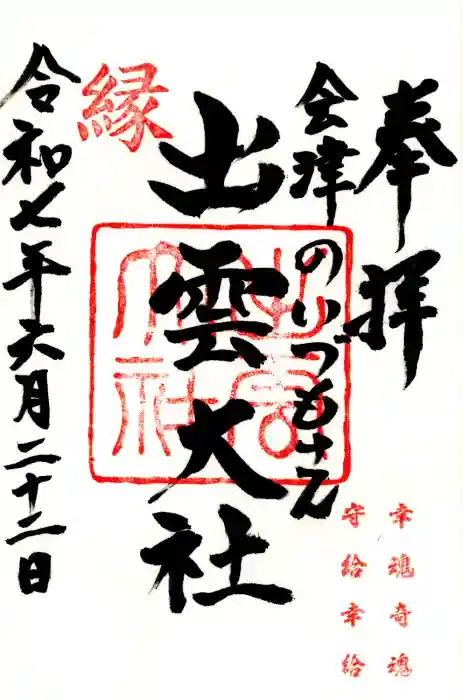 奉拝
会津のいづもさん
出雲大社
縁
令和七年六月二十二日
出雲
大社
幸魂奇魂
守給幸給